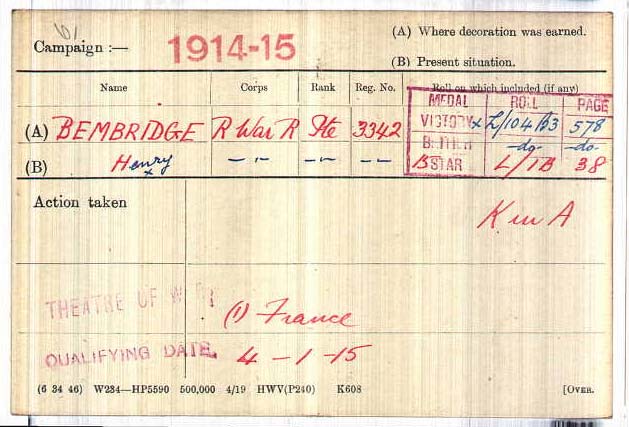 Campaign :— 1914-15
(A) Where decoration was earned.
(B) Present situation.
Name Corps Rank Reg. No. Roll on which included (if any)
MEDAL ROLL PAGE
(A) BEMBRIDGE R War R Pte 3342 VICTORY x L/104/B3 578
BRITISH -do- -do-
(B) Henry x — " — — " — — " — B STAR L/1B 38
Action taken
K in A
THEATRE OF WAR (1) France
QUALIFYING DATE. 4 - 1 - 15
(6 34 46) W234—HP5590 500,000 4/19 HWV(P240) K608 [OVER.